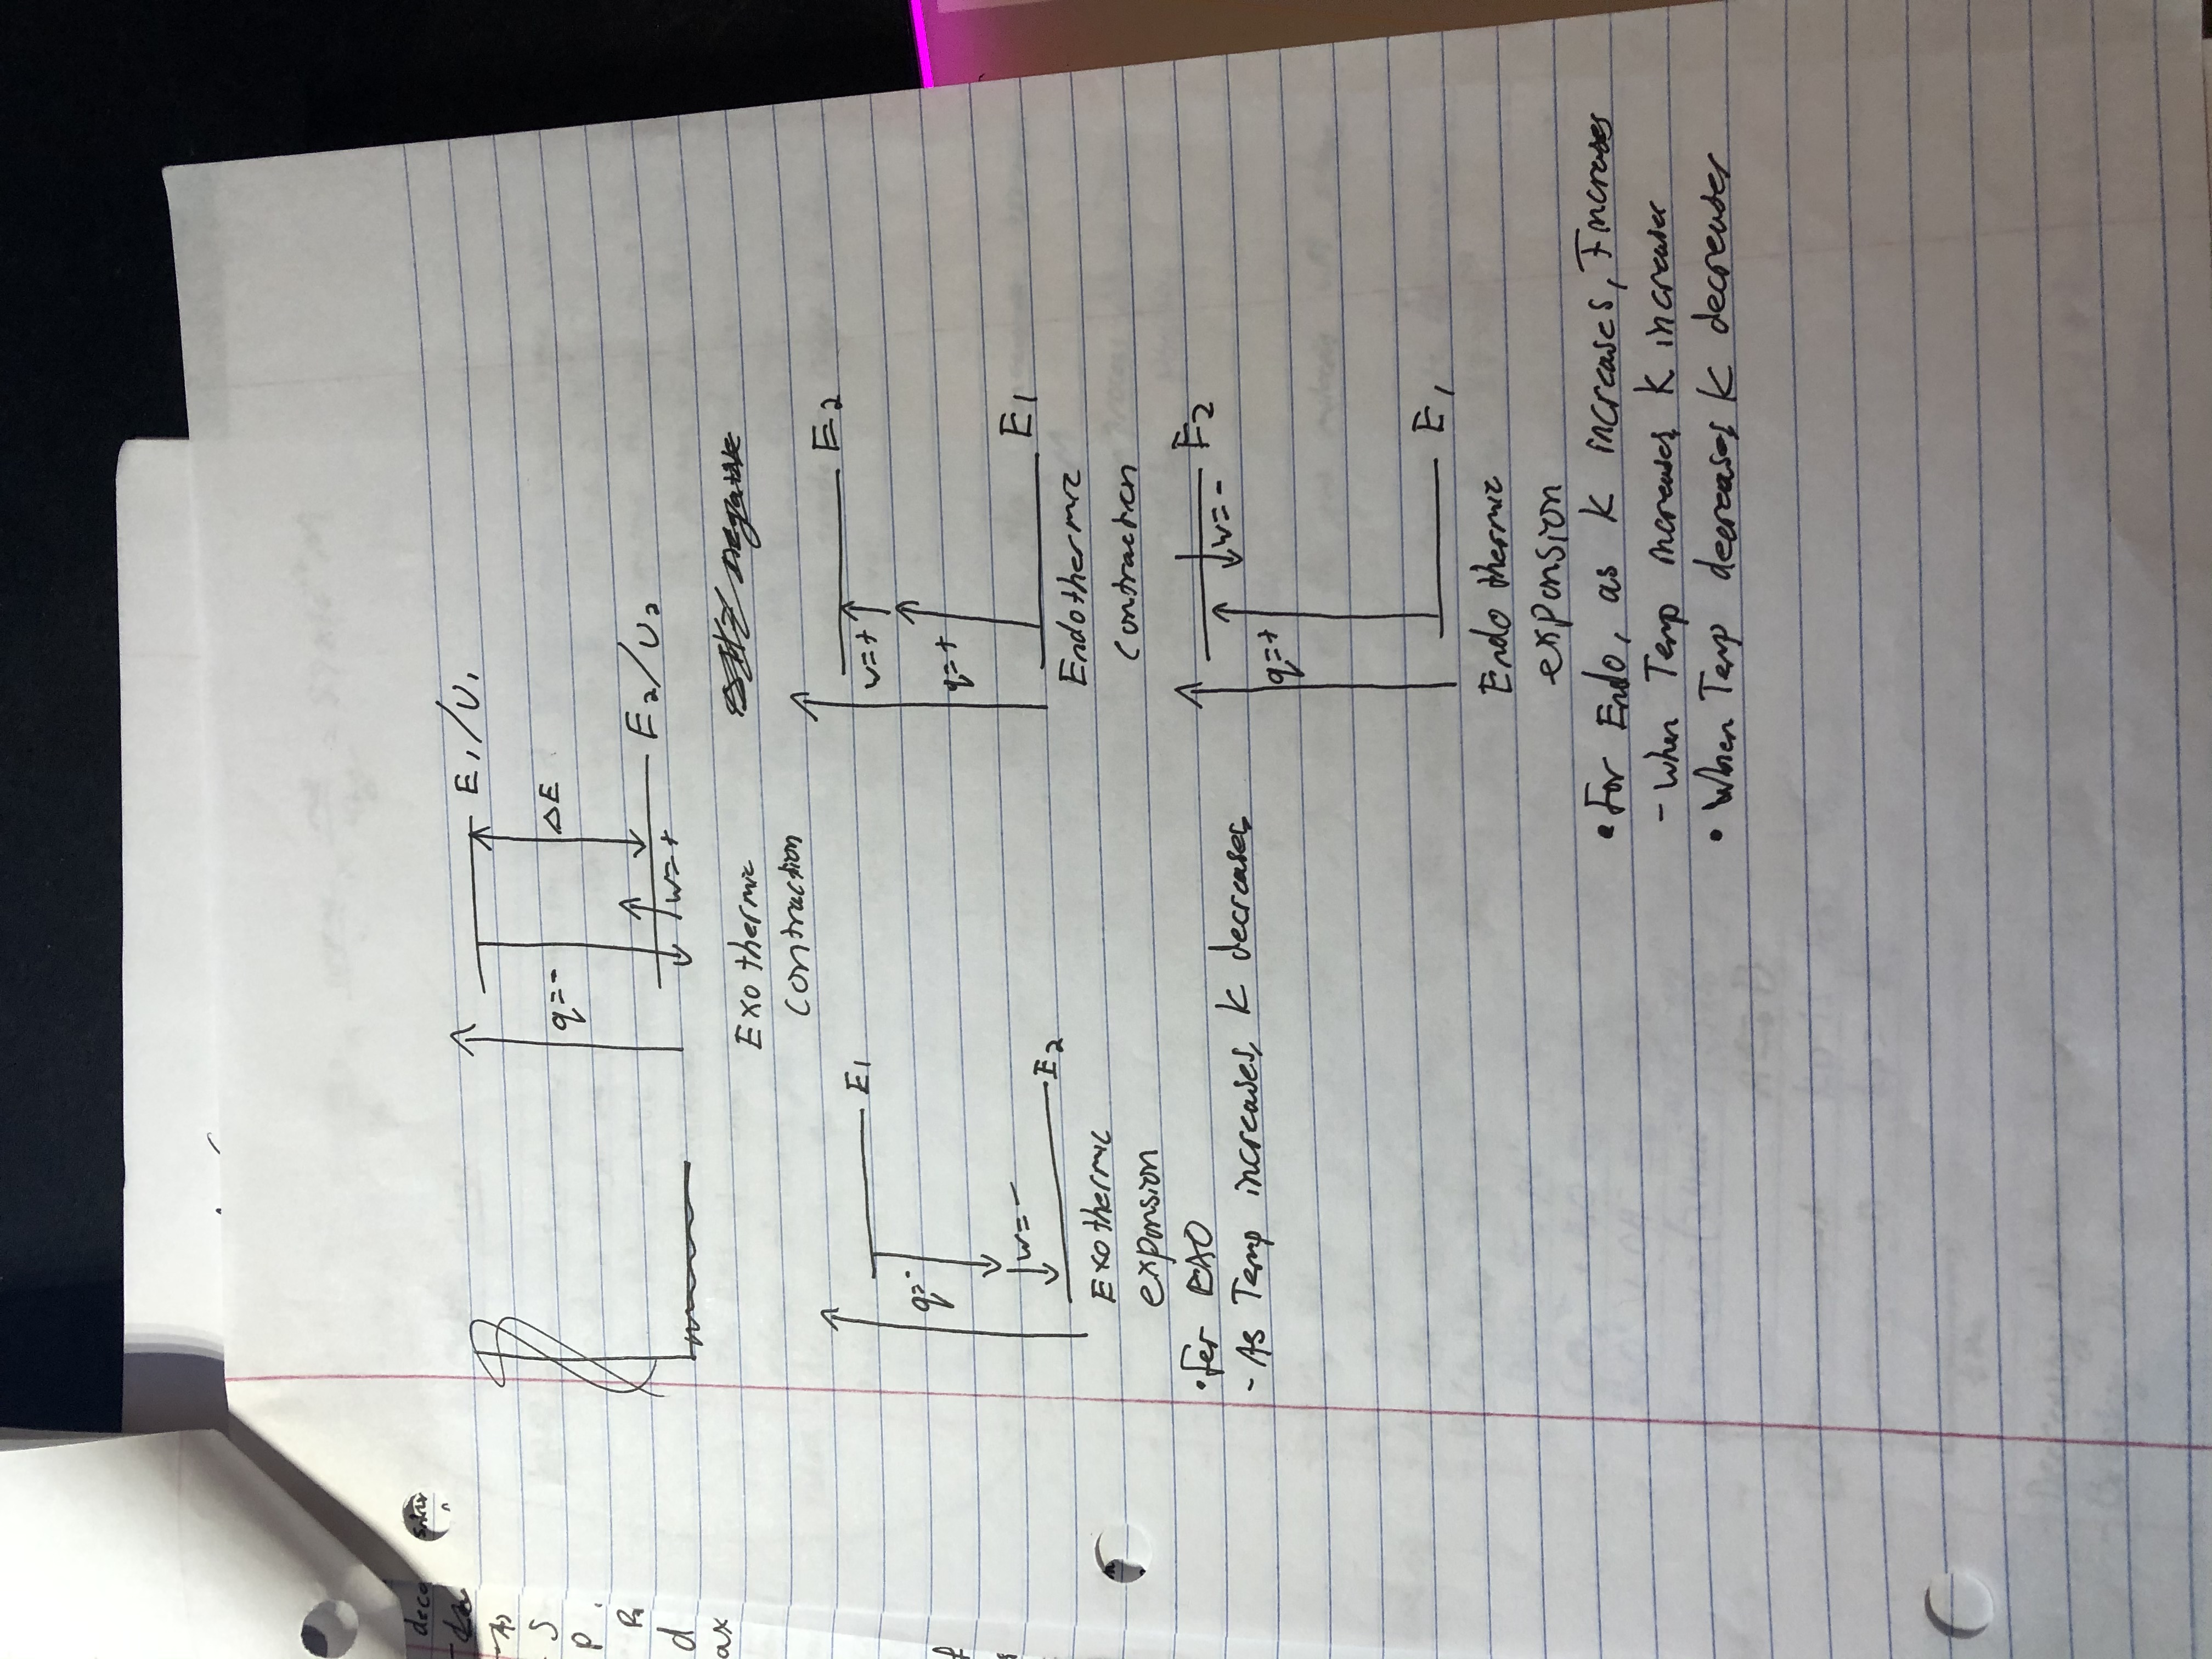 E1/U1
q=-
ΔE
w=+
E2/U2
Exothermic
Contraction
Negative
E1
q=-
w=-
E2
Exothermic
expansion
• For EXO
- As Temp increases, K decreases
E2
w=+
q=+
E1
Endothermic
Contraction
E2
w=-
q=+
E1
Endothermic
expansion
• For Endo, as K increases, T increases
- When Temp increases, K increases
• When Temp decreases, K decreases
S
P
d
ax